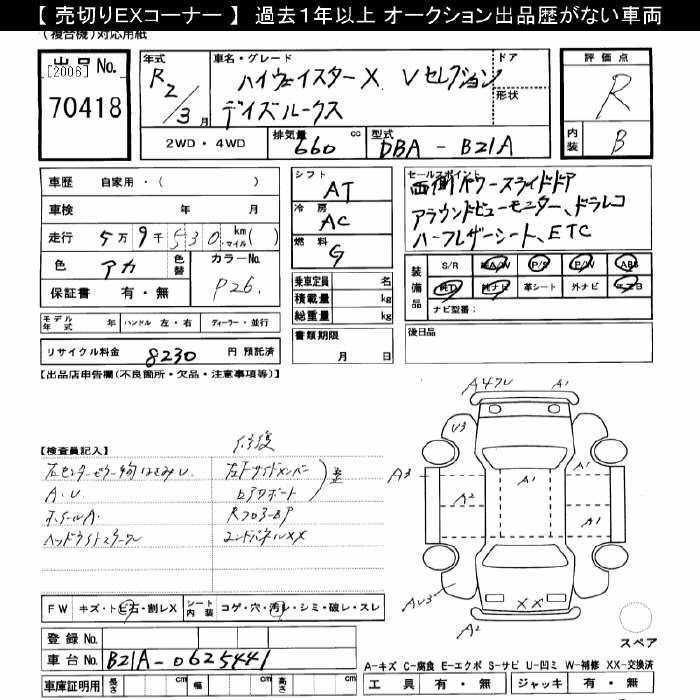 【 売切りEXコーナー 】 過去1年以上 オークション出品歴がない車両
(複合機)対応用紙
出品No.
[2006]
70418
年式
R2/3月
車名・グレード
ハイウェイスターX Vセレクション
デイズルークス
ドア
形状
2WD・4WD
排気量
660 cc
型式
DBA-B21A
評価点
R
内装
B
車歴 自家用・( )
車検 年 月
走行 5万9千530 km マイル( )
色 アカ
色替
カラーNo.
P26.
保証書 有・無
シフト
AT
冷房
AC
燃料
G
乗車定員 名
積載量 kg
総重量 kg
セールスポイント
両側パワースライドドア
アラウンドビューモニター、ドラレコ
ハーフレザーシート、ETC
装備品
S/R 純A/W P/S P/W ABS
純TV 純ナビ 革シート 外ナビ エアB
ナビ型番:
モデル年式 年 ハンドル 左・右 ディーラー・並行
リサイクル料金 8230 円 預託済
書類期限
月 日
後日品
【出品店申告欄(不良箇所・欠品・注意事項等)】
【検査員記入】
修復
A.U
ホイールA.
RフロアーBP
エンドパネルXX
FW キズ・トビ石・割レX
シート内装 コゲ・穴・汚レ・シミ・破レ・スレ
登録No.
車台No. B21A-0625441
車庫証明用 長さ cm 幅 cm 高さ cm
A4ワレ
A1
U3
A3
A2
A1
A1
A1
AU3
XX
A2
スペア
A-キズ C-腐食 E-エクボ S-サビ U-凹ミ W-補修 XX-交換済
工具 有・無 ジャッキ 有・無